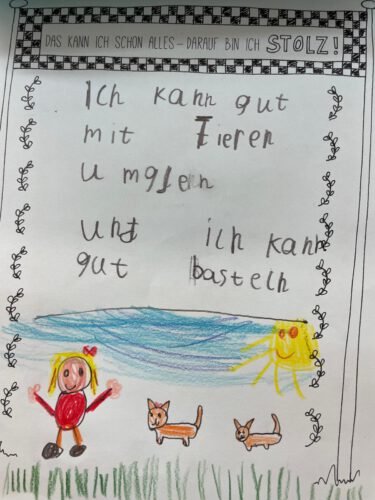 DAS KANN ICH SCHON ALLES – DARAUF BIN ICH STOLZ!
Ich kann gut
mit Tieren
umgjern
und ich kann
gut basteln